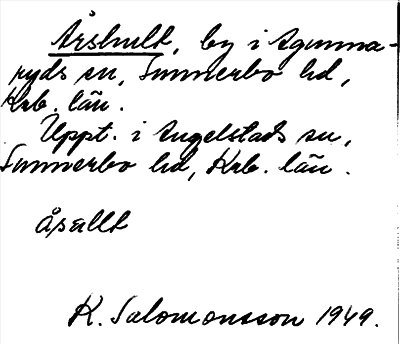 Årshult, by i Agunna-
ryds sn, Sunnerbo hd,
Krb. län.
Uppt. i Angelstads sn,
Sunnerbo hd, Krb. län.
åsallt
K. Salomonsson 1949.